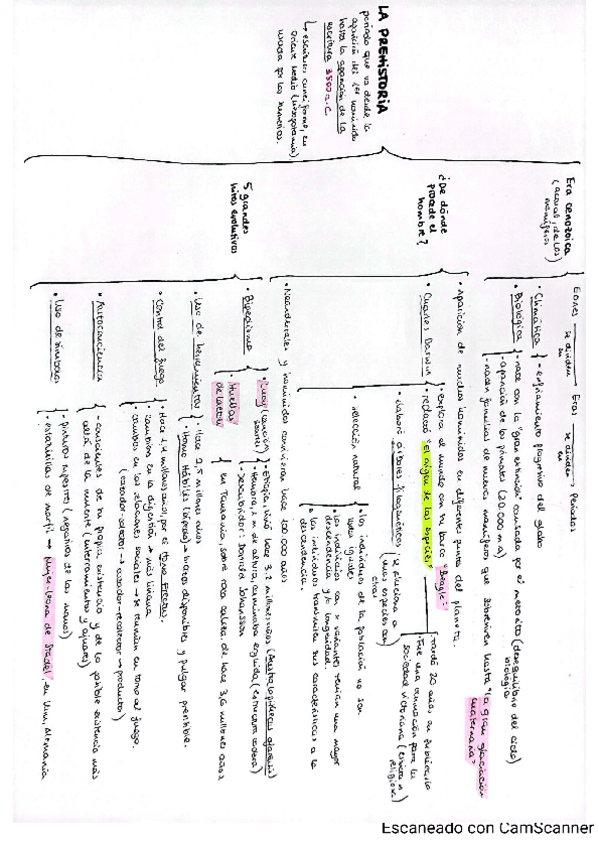 LA PREHISTORIA
periodo que va desde la
aparición del 1er homínido
hasta la aparición de la
escritura 3500 a.C
↳ escritura cuneiforme, en
Oriente Medio (Mesopotamia)
usada por los sumerios.
Era cenozoica
(acoras, de los
mamíferos)
Eones → se dividen en → Eras → se dividen en → Periodos
• Climática { - enfriamiento progresivo del globo
• Biológica { - nace con la "gran extinción" causada por el meteorito (desequilibrio del ciclo biológico)
- aparición de los primates (20.000 m a)
- nacen familias de nuevos mamíferos que sobreviven hasta "la gran glaciación cuaternaria"
¿De dónde
procede el
hombre?
• Aparición de muchos homínidos en diferentes puntos del planeta.
• Charles Darwin
• explora el mundo con su barco "Beagle"
• redactó "El origen de las especies"
• tardó 20 años en publicarlo
• Fue una conmoción para la
sociedad victoriana (
religiosa)
• elaboró árboles filogenéticos: se relaciona a
unas especies con
otras
• selección natural
• los individuos de la población no son
todos iguales
• los individuos con + variantes tenían una mayor
descendencia y/o longevidad.
• los individuos transmiten sus características a la
descendencia.
• Neandertales y homínidos convivieron hace 100.000 años
5 grandes
hitos evolutivos
• Bipedismo
• "Lucy" (canción
Beatles)
- Etiopía vivió hace 3,2 millones años (Australopithecus afarensis)
- Hembra, 1 m de altura, caminaba erguida (estructura cadera)
- Descubridor: Donald Johanson
• Huellas
de Laetoli
{ en Tanzania, sobre roca caliza de hace 3,6 millones años
• Uso de herramientas { • Hace 2,5 millones años
• Homo Hábilis (África) → manos disponibles y pulgar prensible.
• Control del fuego
• Hace 1,4 millones años, por el Homo Erectus.
• Cambios en la digestión → más liviana
• cambios en las relaciones sociales → se reunían en torno al fuego.
(cazador-colector → cazador-recolector → productor)
• Autoconciencia
- conscientes de su propia existencia y de la posible existencia más
allá de la muerte (enterramientos y ajuares)
• Uso de símbolos
- pinturas rupestres (negativos de las manos)
- estatuillas de marfil → Mujer-leona de Stadel, en Ulm, Alemania
Escaneado con CamScanner